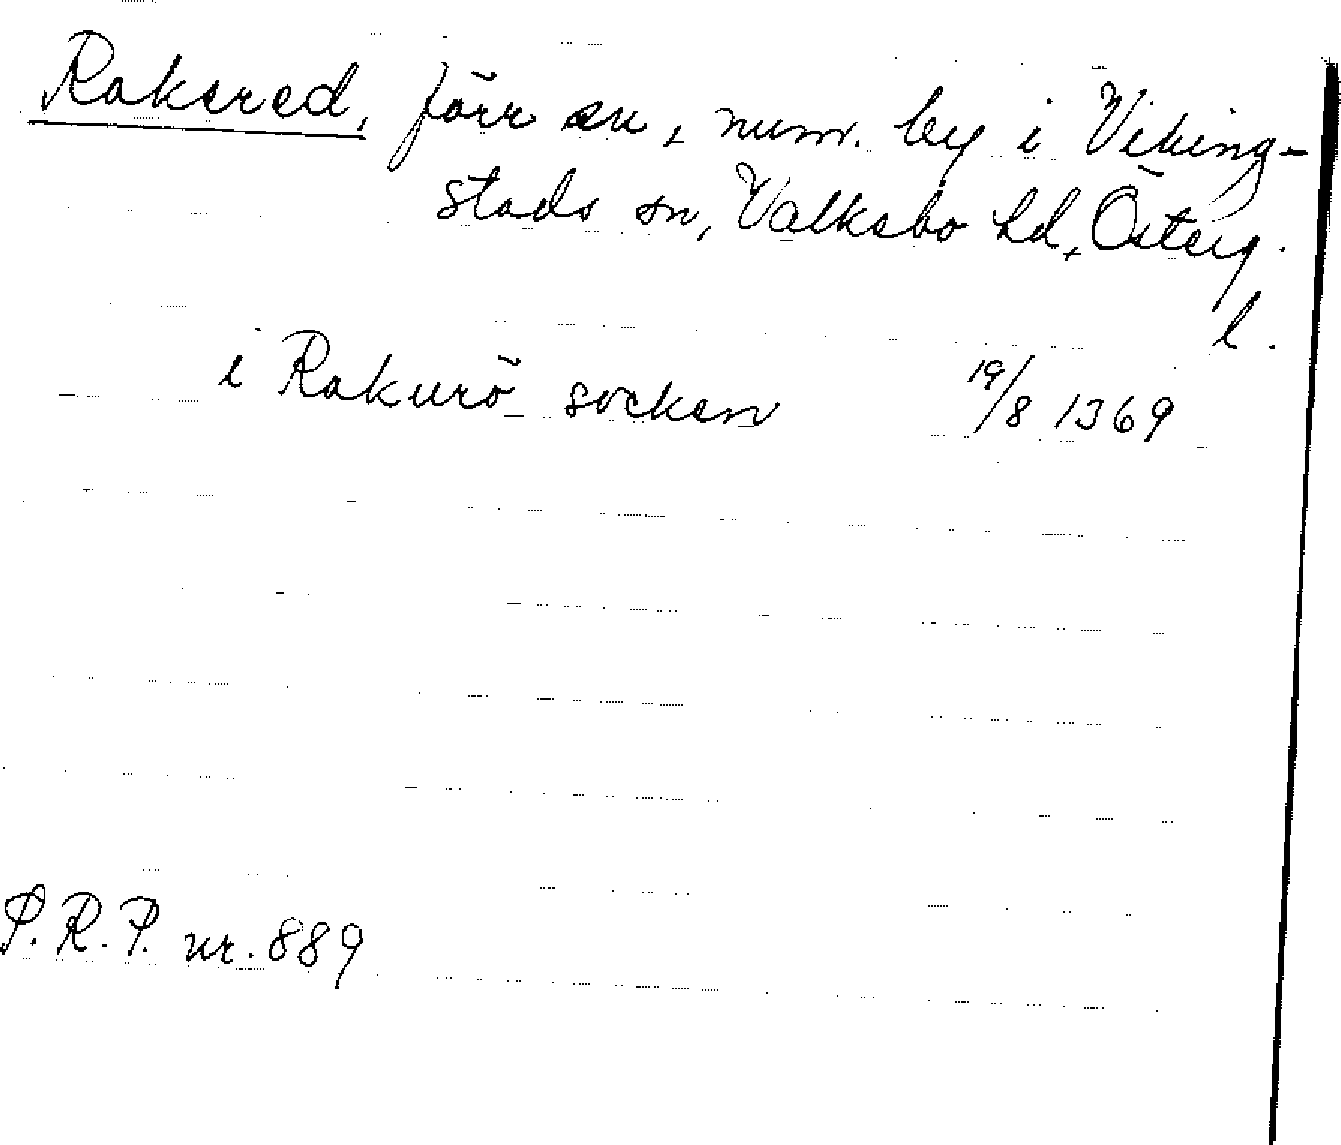 Rakered, förr sn, num. by i Viking-
stads sn, Valkebo hd, Österg.
l.
i Rakurö socken 19/8 1369
S.R.P. nr. 889